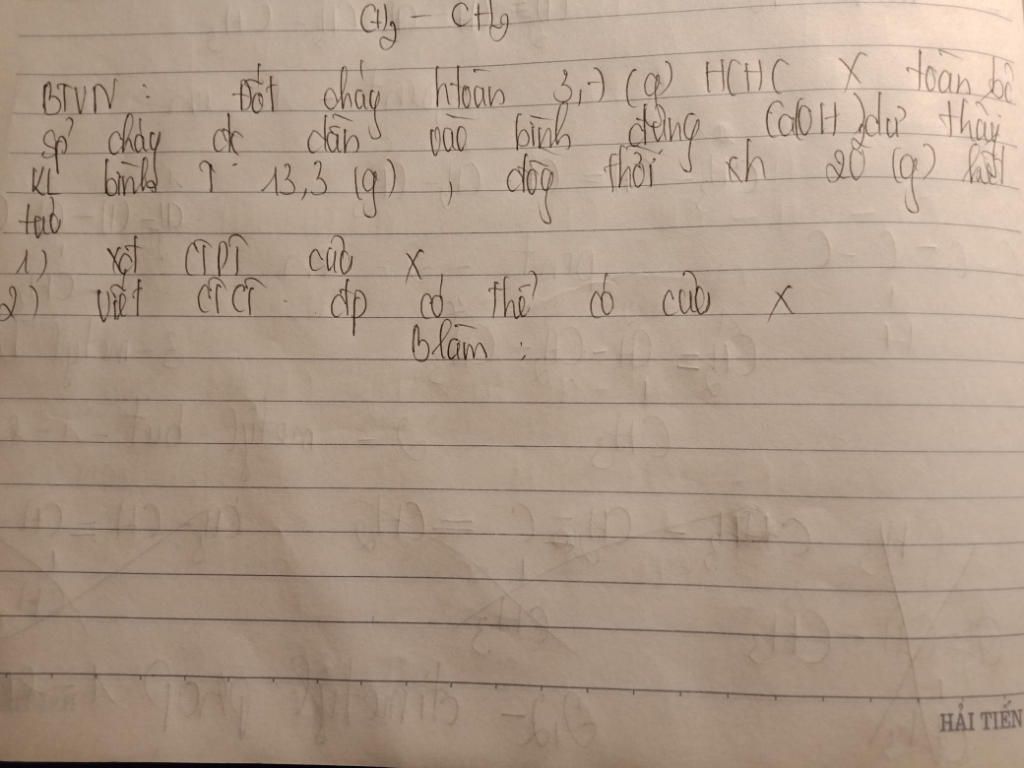 CH3 - CH3
BTVN : Đốt cháy htoàn 3,7 (g) HCHC X toàn bộ
sp cháy đc dẫn vào bình đựng Ca(OH)2 dư thấy
KL bình ↑ 13,3 (g) , đồg thời xh 20 (g) kết
tủa
1) xđ CTPT của X
2) viết CTCT đp có thể có của X
Blàm :
HẢI TIẾN